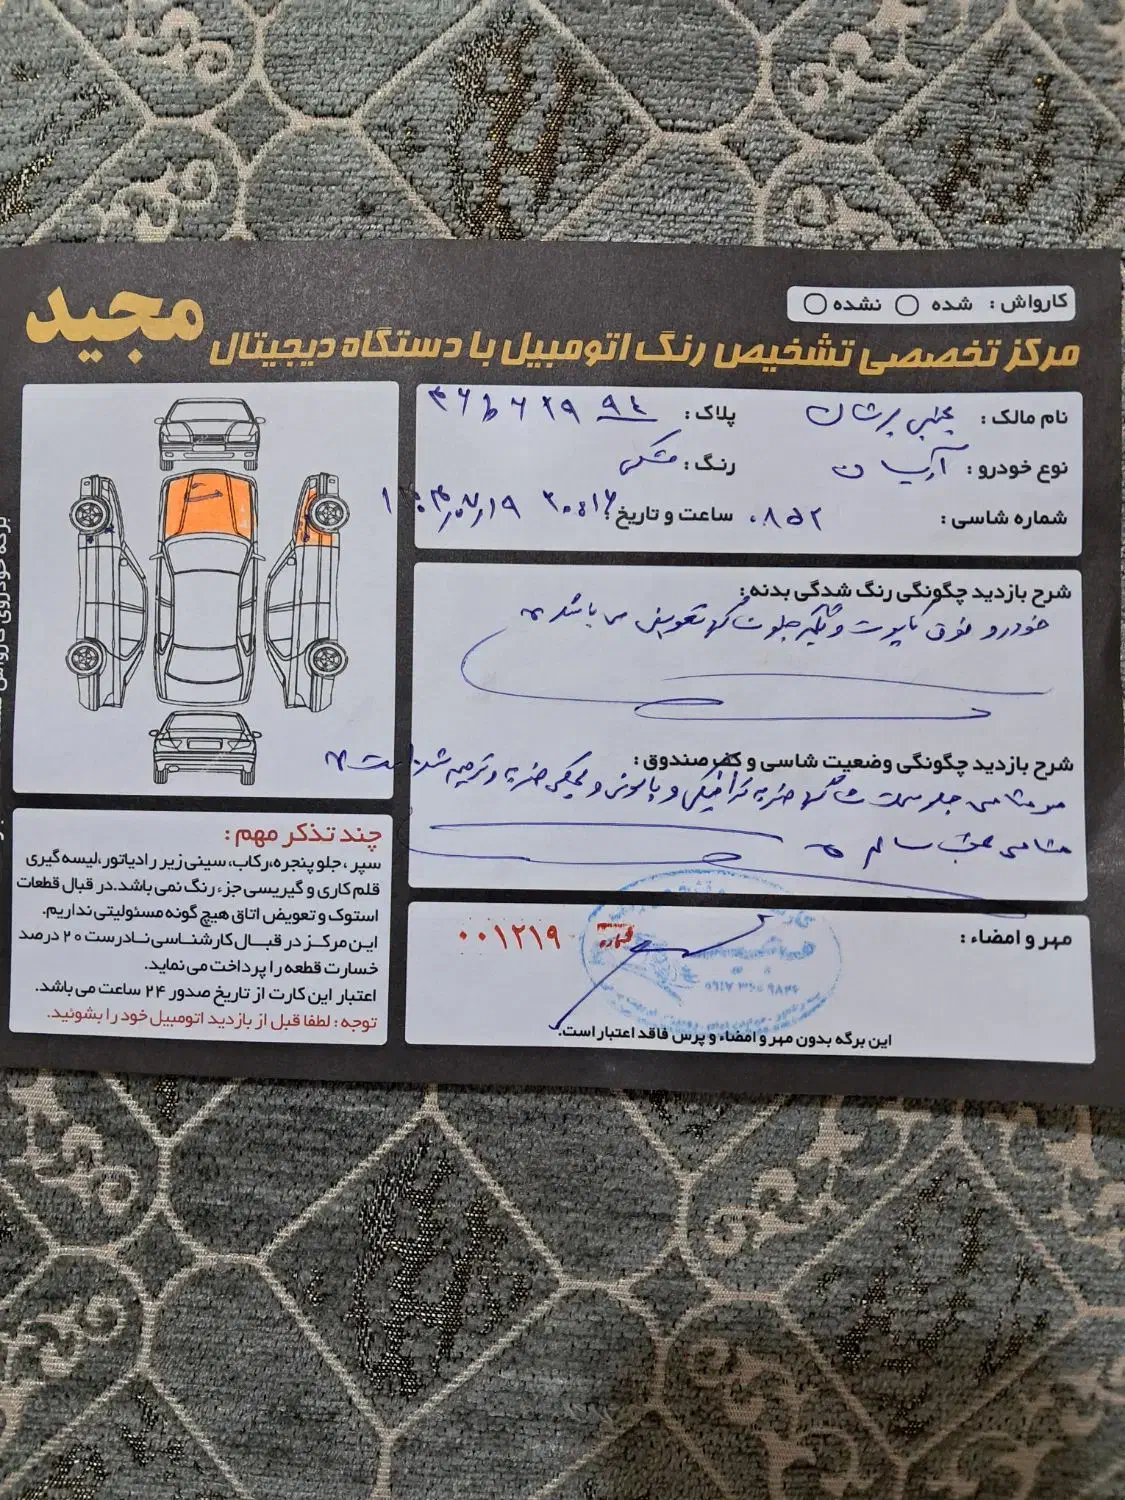 کارواش : شده نشده
مجید
مرکز تخصصی تشخیص رنگ اتومبیل با دستگاه دیجیتال
نام مالک :
پلاک :
نوع خودرو : آریسان
رنگ : مشکی
شماره شاسی : ۰۸۵۲
ساعت و تاریخ :
شرح بازدید چگونگی رنگ شدگی بدنه :
خودرو فوق کاپوت و گلگیر جلو شاگرد تعویض می باشد
شرح بازدید چگونگی وضعیت شاسی و کف صندوق :
سر شاسی جلو سمت شاگرد ضربه ترافیکی و پالونی و لچکی ضربه و ترمیم شده است
شاسی عقب سالم
چند تذکر مهم :
سپر ، جلو پنجره،رکاب، سینی زیر رادیاتور،لیسه گیری
قلم کاری و گیریسی جزء رنگ نمی باشد.در قبال قطعات
استوک و تعویض اتاق هیچ گونه مسئولیتی نداریم.
این مرکز در قبال کارشناسی نادرست ۲۰ درصد
خسارت قطعه را پرداخت می نماید.
اعتبار این کارت از تاریخ صدور ۲۴ ساعت می باشد.
توجه : لطفا قبل از بازدید اتومبیل خود را بشوئید.
مهر و امضاء :
شماره ۰۰۱۲۱۹
این برگه بدون مهر و امضاء و پرس فاقد اعتبار است.